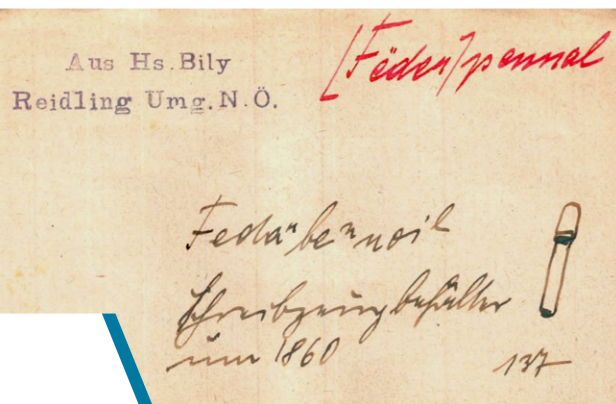 Aus Hs. Bily
Reidling Umg. N.Ö.
[Feder]pennal
Schreibzeugbehälter
um 1860
137